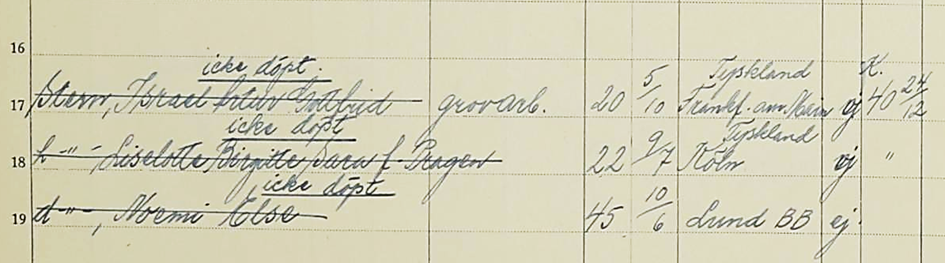 16
icke döpt.
Tyskland K.
17 Stern, Israel Artur Gottfrid grovarb. 20 5/10 Frankf. am. Main ej 40 24/12
icke döpt
Tyskland
18 h -"- Liselotte Birgitte Sara f. Pragen 22 9/7 Köln ej "
icke döpt
19 d -"-, Noemi Else 45 10/6 Lund BB ej.